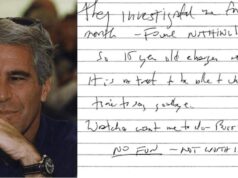 They investigated me
month — FOUND NOTHING!!
So 15 year old charges
It is a treat to be able to
time to say goodbye.
Watcha want me to do —
NO FUN — NOT WORTH